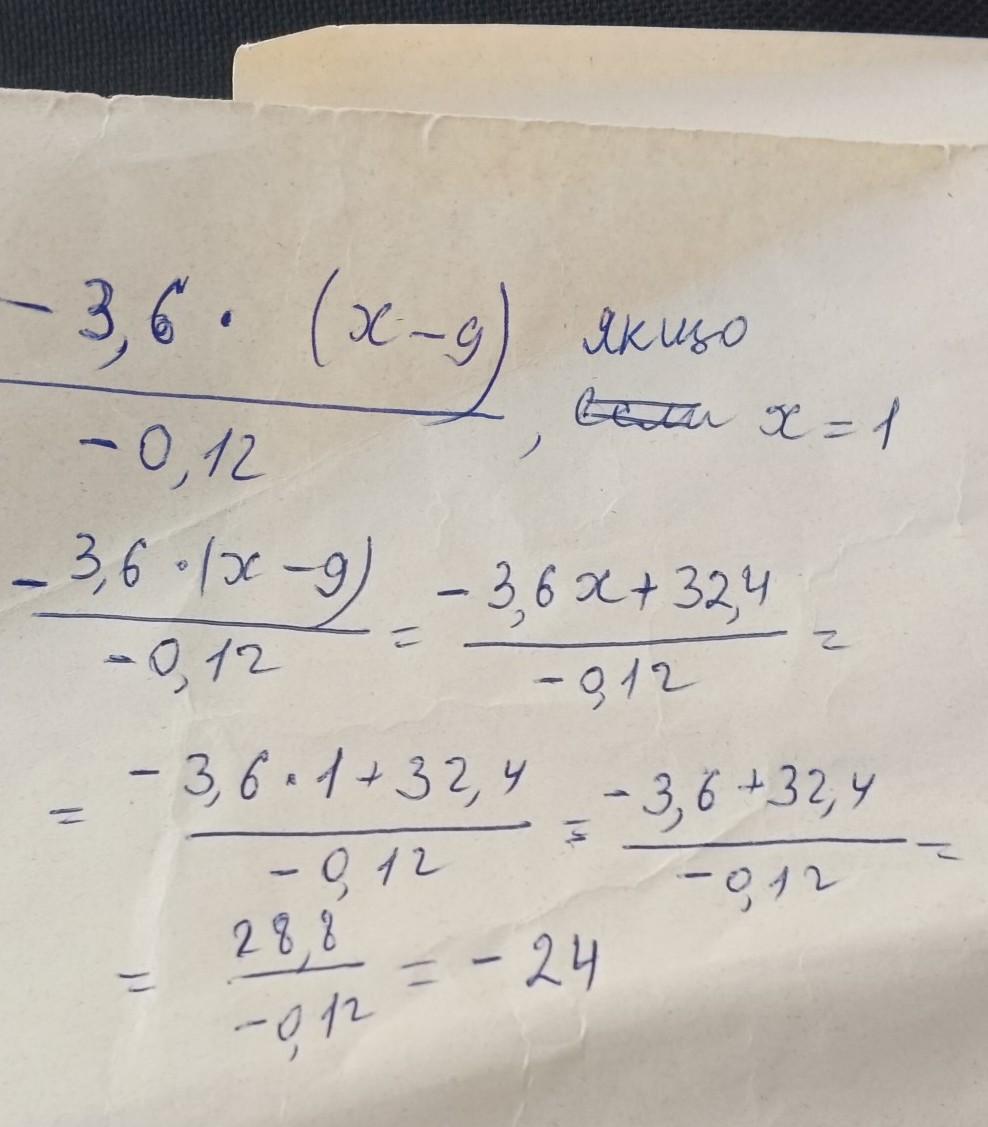 - 3,6 · (x - 9)
якщо
- 0,12 , если x = 1
- 3,6 · (x - 9) / - 0,12 = - 3,6 x + 32,4 / - 0,12 =
= - 3,6 · 1 + 32,4 / - 0,12 = - 3,6 + 32,4 / - 0,12 =
= 28,8 / - 0,12 = - 24